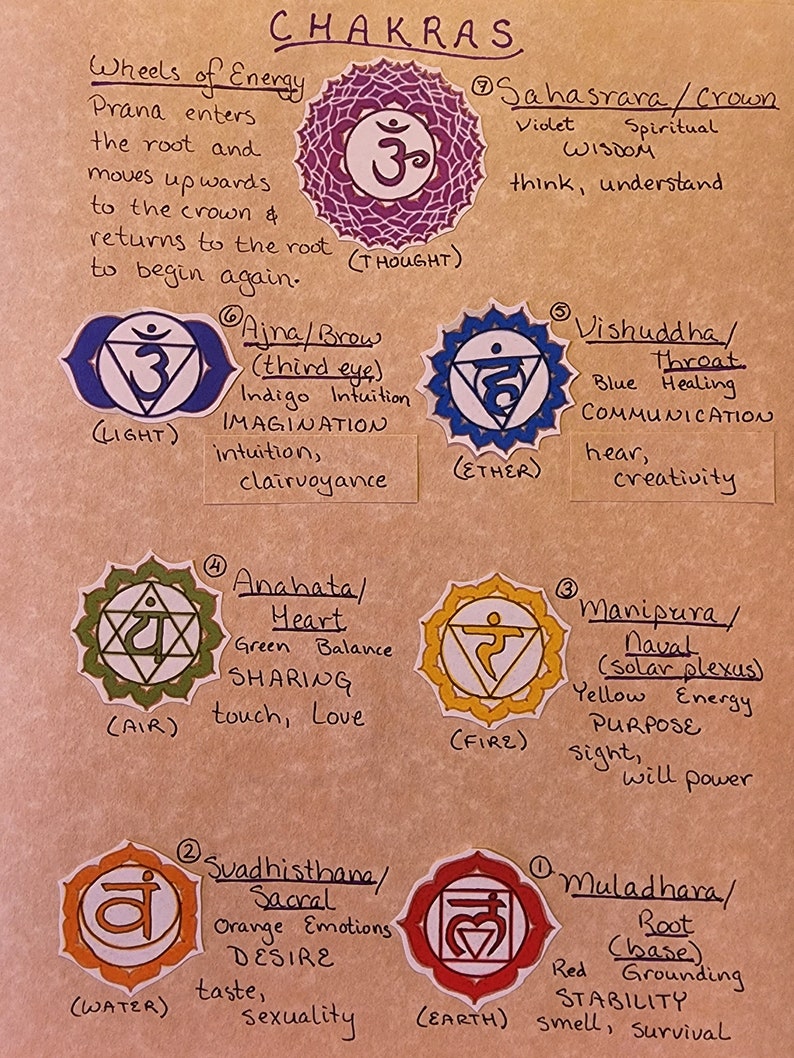 CHAKRAS
Wheels of Energy
Prana enters
the root and
moves upwards
to the crown &
returns to the root
to begin again.
ॐ
(THOUGHT)
⑦ Sahasrara/crown
Violet Spiritual
WISDOM
think, understand
ॐ
(LIGHT)
⑥ Ajna/Brow
(third eye)
Indigo Intuition
IMAGINATION
intuition,
clairvoyance
हं
(ETHER)
⑤ Vishuddha/
Throat
Blue Healing
COMMUNICATION
hear,
creativity
यं
(AIR)
④ Anahata/
Heart
Green Balance
SHARING
touch, Love
रं
(FIRE)
③ Manipura/
Naval
(solar plexus)
Yellow Energy
PURPOSE
sight,
will power
वं
(WATER)
② Svadhisthana/
Sacral
Orange Emotions
DESIRE
taste,
sexuality
लं
(EARTH)
① Muladhara/
Root
(base)
Red Grounding
STABILITY
smell, survival